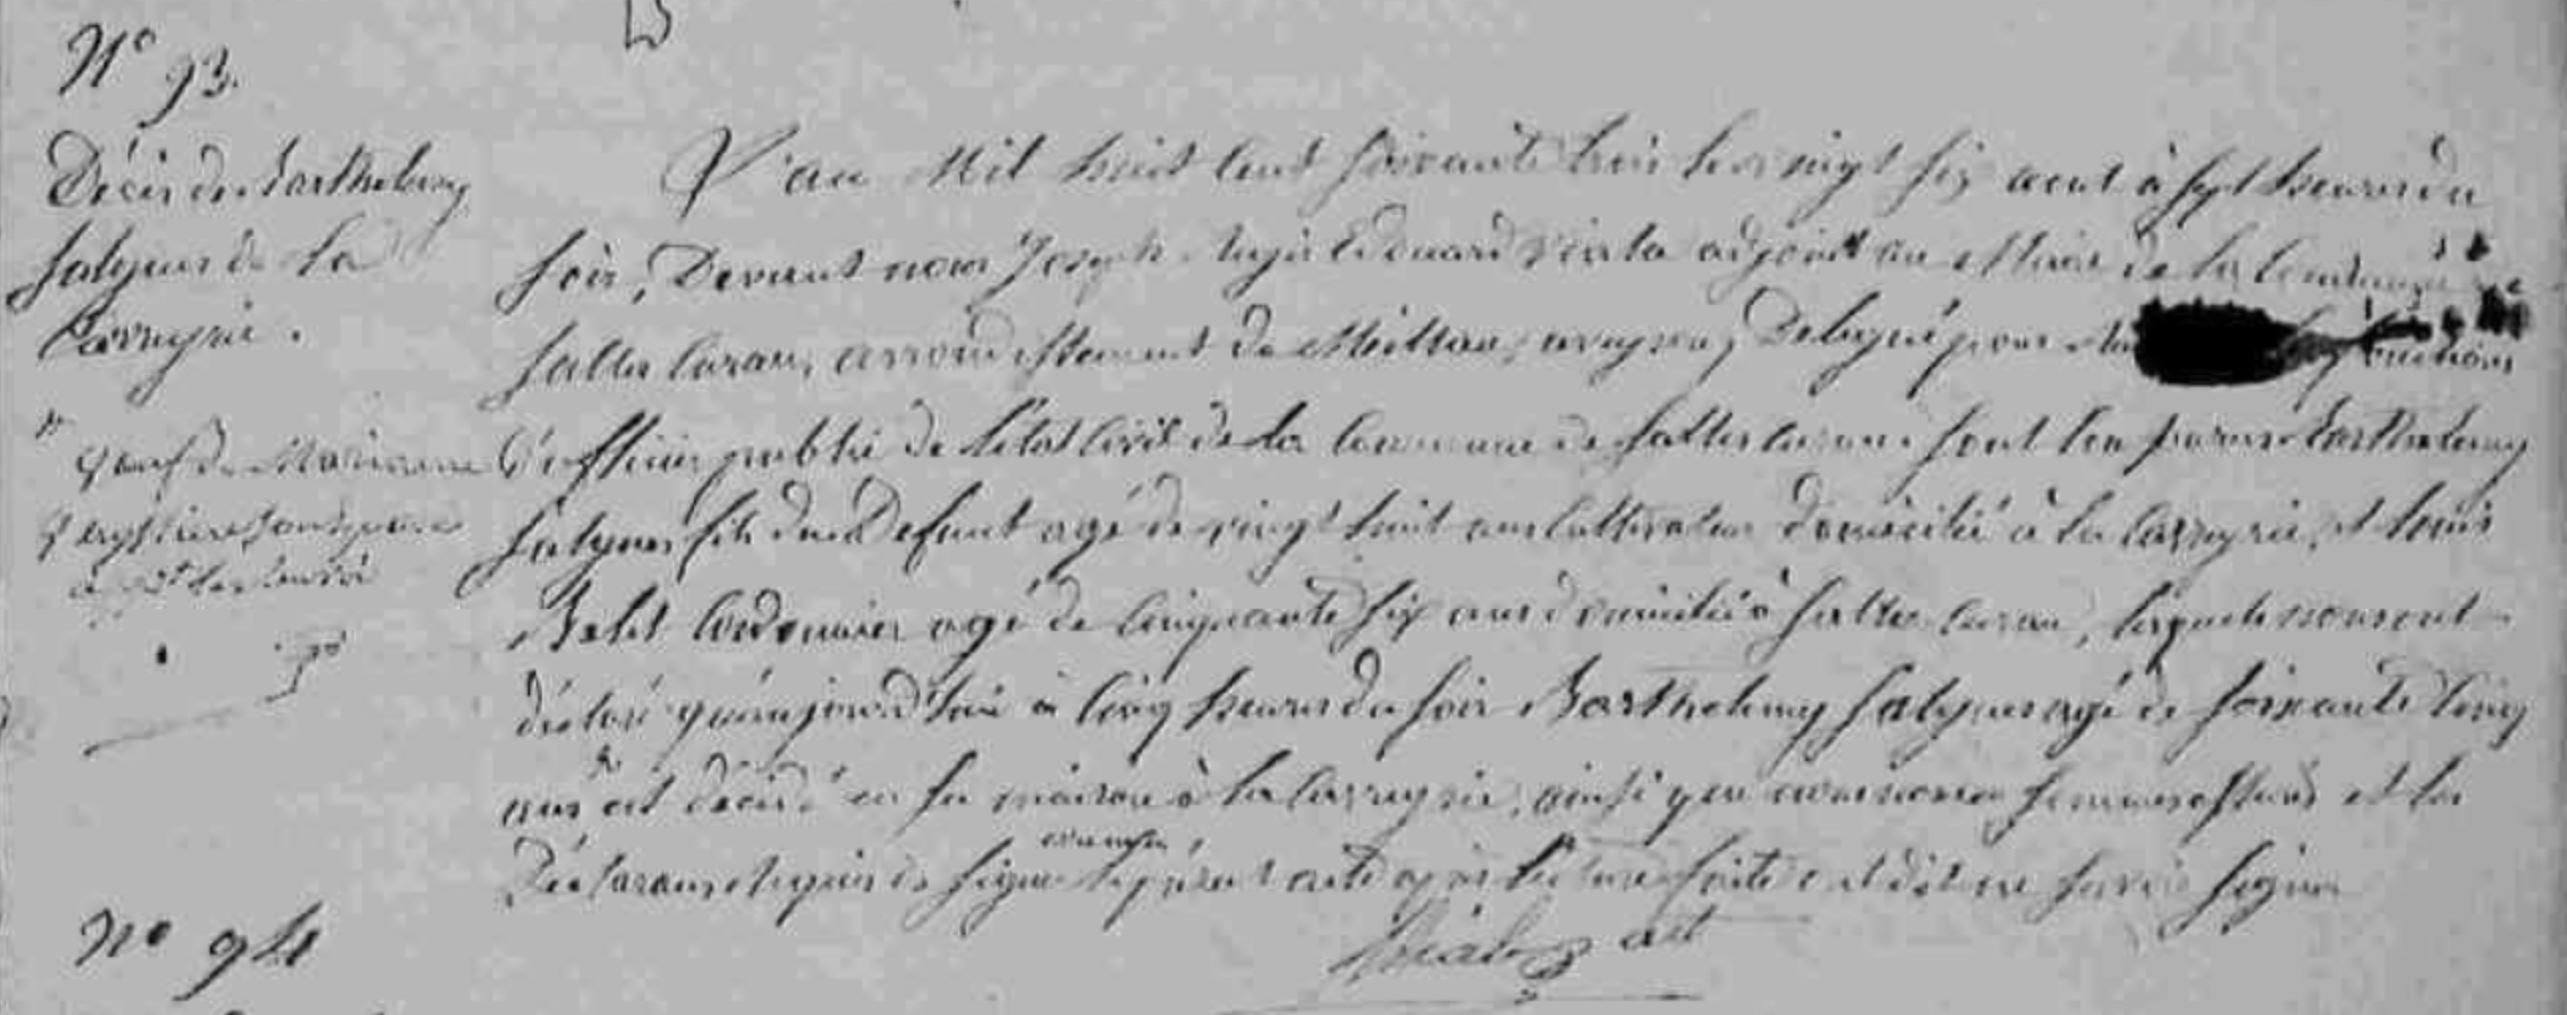 N° 93.
Décès de Barthelemy
Salgues de la
Carreyrie.
veuf de Marianne
L'an Mil huit cent soixante trois le vingt six aout à sept heures du
soir, Devant nous Joseph Edouard adjoint au Maire de la Commune de
Salles Curan, arrondissement de Milhau, aveyron, Delegué pour fonctions
d'officier public de l'état Civil de la Commune de Salles Curan. Sont Comparus Barthelemy
Salgues fils du Defunt agé de vingt huit ans Cultivateur domicilié à la Carreyrie, et Louis
Cordonnier agé de Cinquante Six ans domicilié à Salles Curan, lesquels nous ont
déclaré qu'aujourd'hui à Cinq heures du soir Barthelemy Salgues agé de soixante Cinq
ans est décédé en sa maison à la Carreyrie, ainsi que nous nous en sommes assurés et les
Déclarans requis de signer le présent acte après lecture faite ont dit ne savoir signer
adt
N° 94